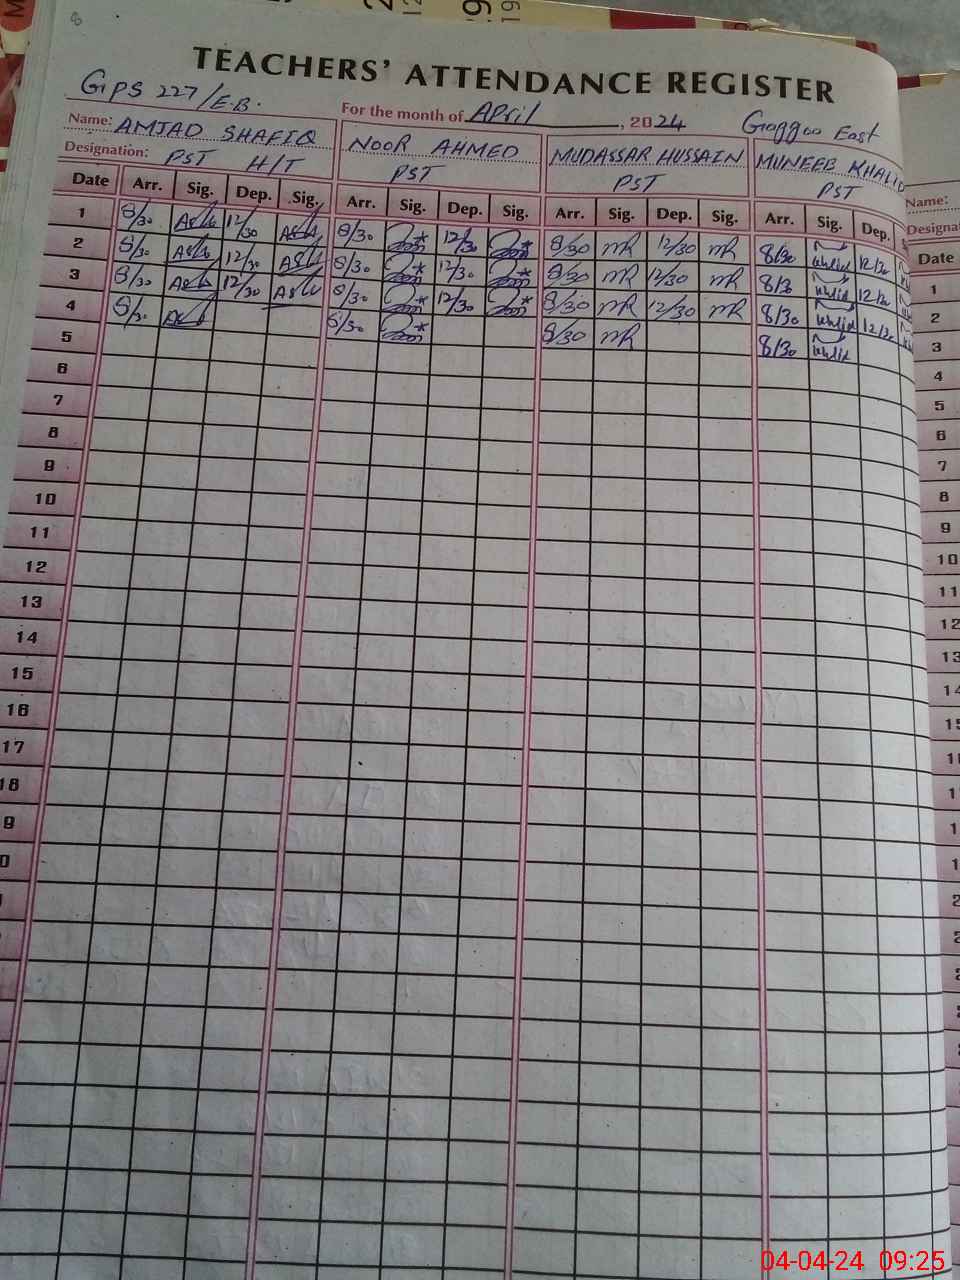 8
TEACHERS' ATTENDANCE REGISTER
GPS 227/E.B. For the month of April, 2024 Gaggoo East
Name: AMJAD SHAFIQ NOOR AHMED MUDASSAR HUSSAIN MUNEEB KHALID
Designation: PST H/T PST PST PST
Date Arr. Sig. Dep. Sig. Arr. Sig. Dep. Sig. Arr. Sig. Dep. Sig. Arr. Sig. Dep.
1 8/30 12/30 8/30 12/30 8/30 MR 12/30 MR 8/30 12/30
2 8/30 12/30 8/30 12/30 8/30 MR 12/30 MR 8/30 12/30
3 8/30 12/30 8/30 12/30 8/30 MR 12/30 MR 8/30 12/30
4 8/30 8/30 8/30 MR 8/30
5
6
7
8
9
10
11
12
13
14
15
16
17
18
9
0
Name:
Designat
Date
1
2
3
4
5
6
7
8
9
10
11
12
13
14
04-04-24 09:25